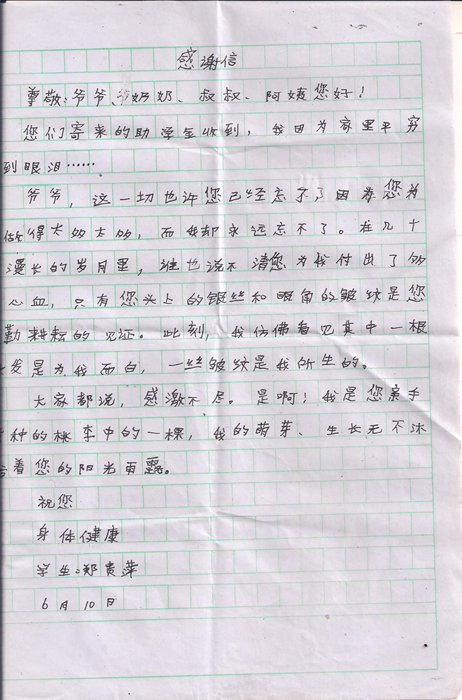 感谢信
尊敬:爷爷、奶奶、叔叔、阿姨您好!
您们寄来的助学金收到,我因为家里平穷
到眼泪……
爷爷,这一切也许您已经忘了了因为您为
做得太多太多,而我却永远忘不了。在几十
漫长的岁月里,谁也说不清您为我付出了多
心血,只有您头上的银丝和眼角的皱纹是您
勤耕耘的见证。此刻,我仿佛看见其中一根
发是为我而白,一丝皱纹是我所生的。
大家都说,感激不尽。是啊!我是您亲手
种的桃李中的一棵,我的萌芽、生长无不沐
着您的阳光雨露。
祝您
身体健康
学生:郑贵萍
6月10日